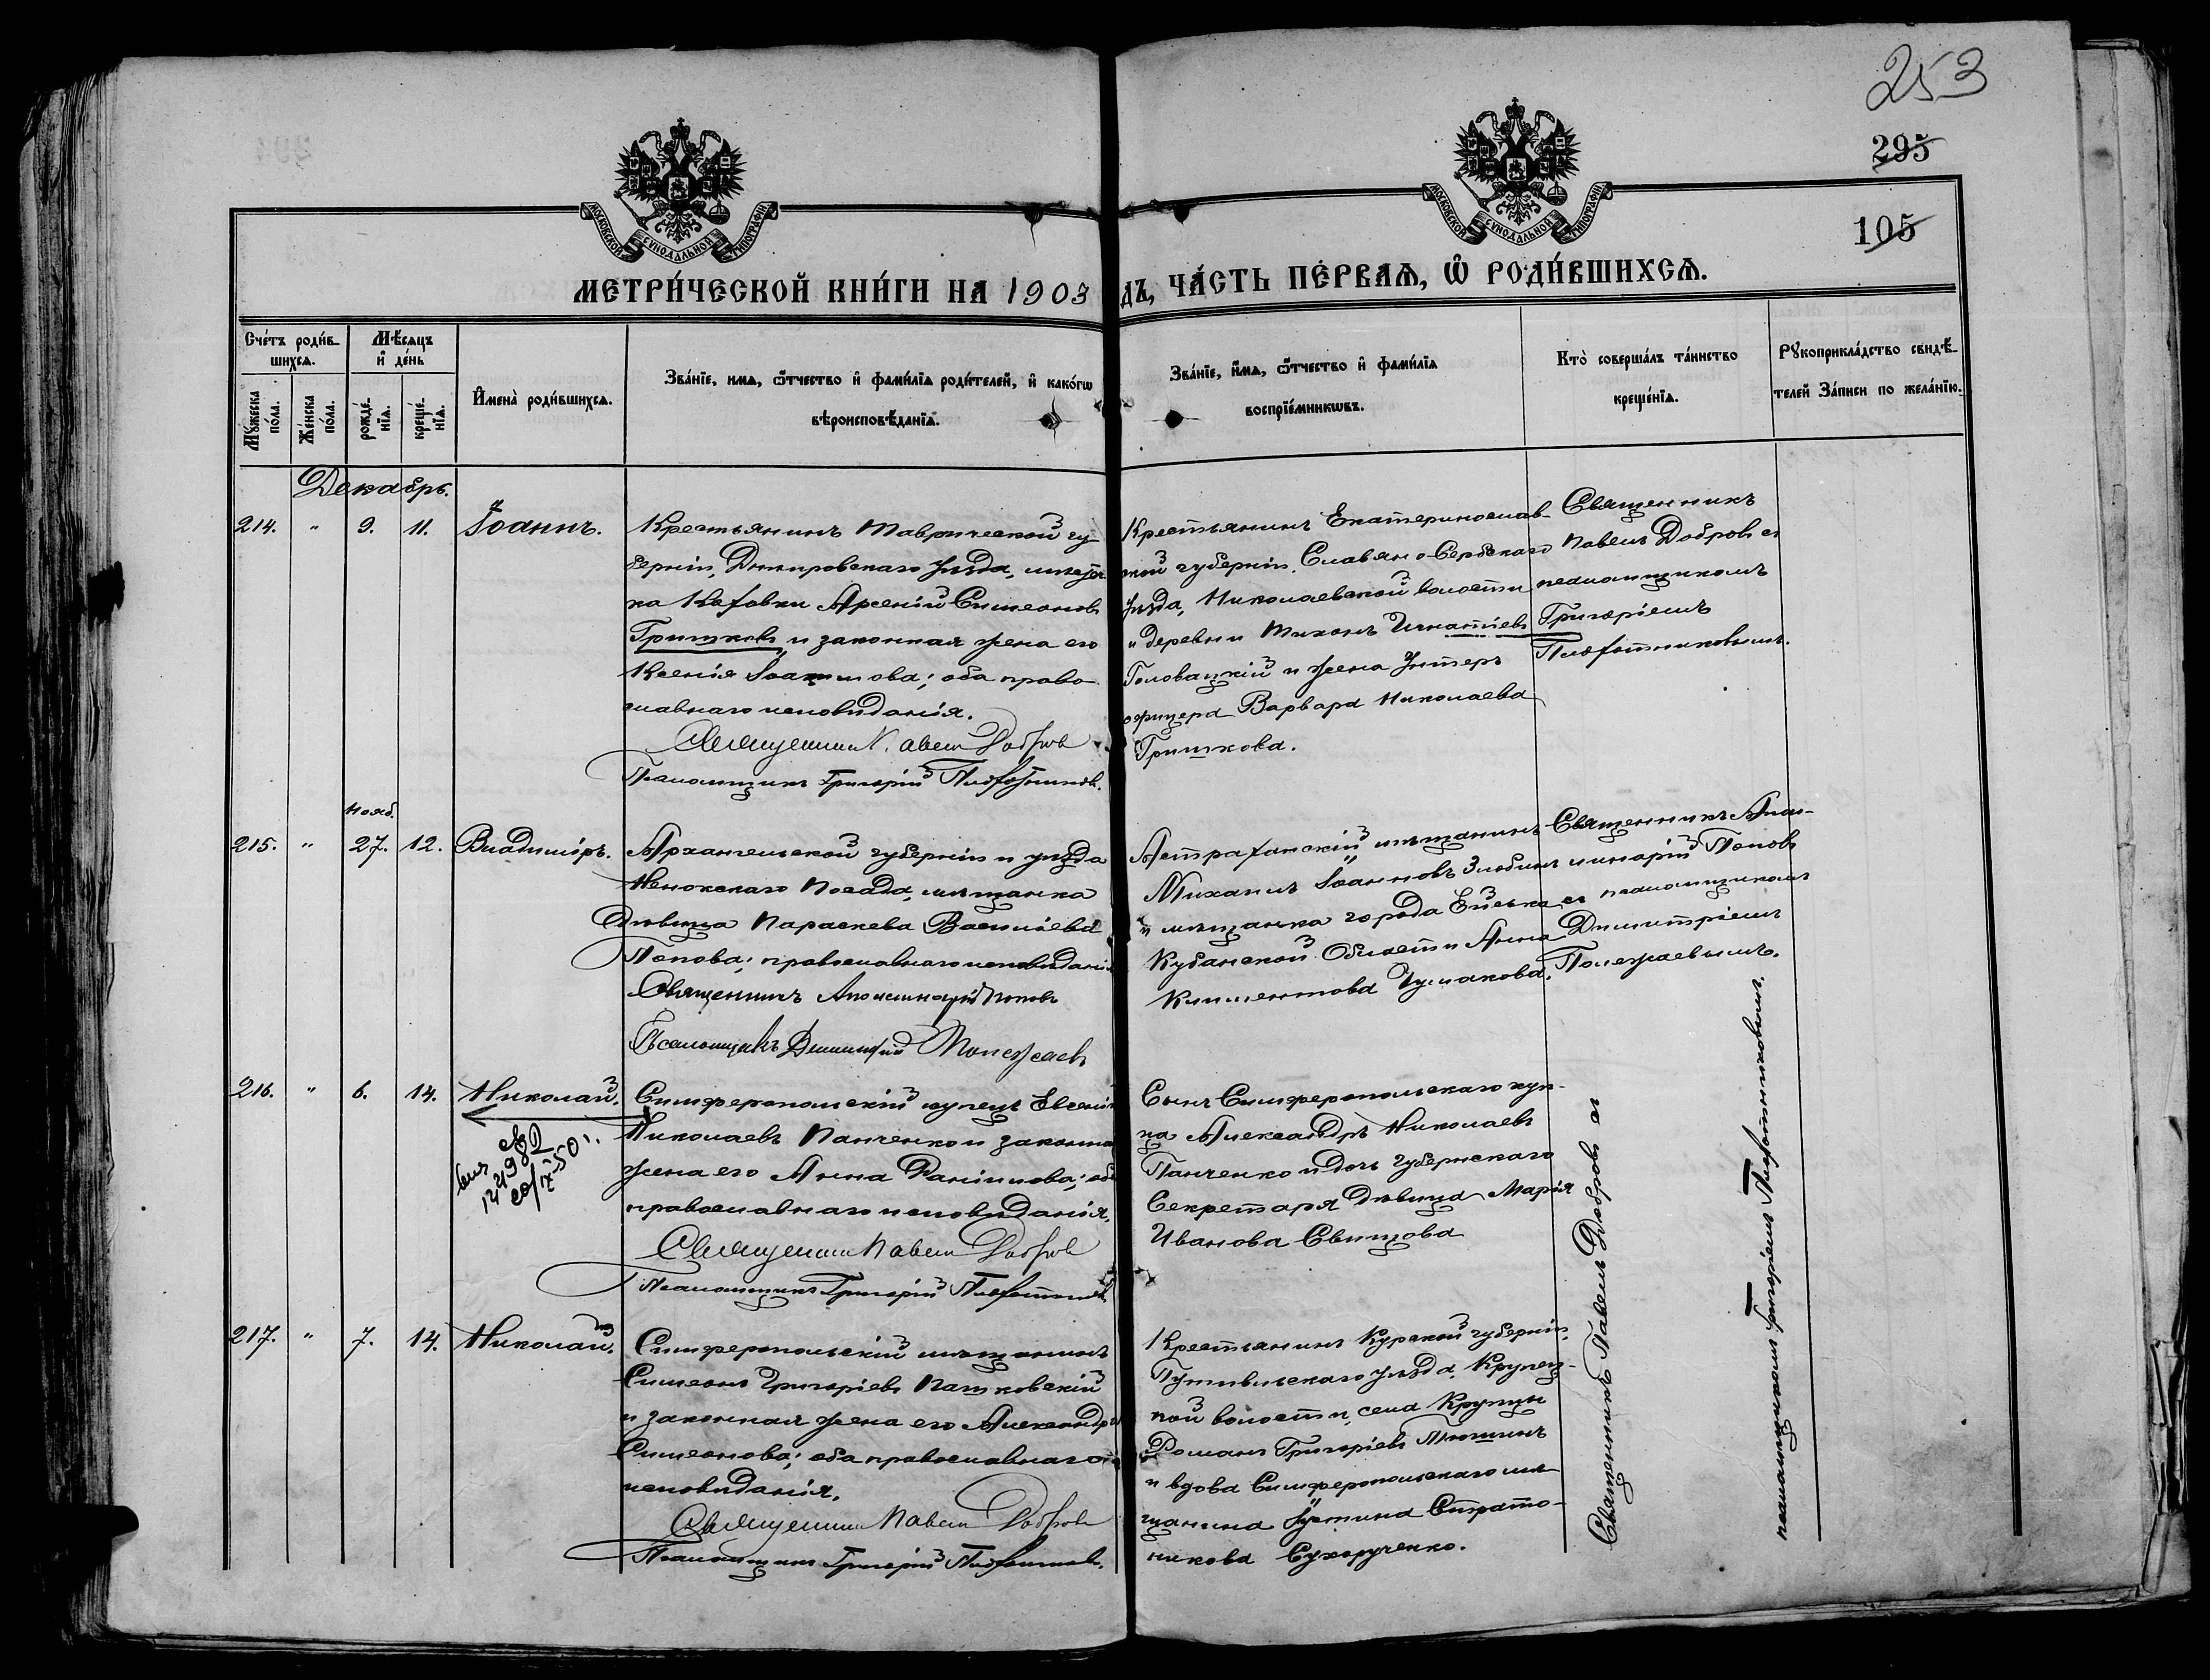 253
295
105
МОСКОВСКОЙ СѴНОДАЛЬНОЙ ТИПОГРАФІИ
МОСКОВСКОЙ СѴНОДАЛЬНОЙ ТИПОГРАФІИ
МЕТРИ́ЧЕСКОЙ КНИ́ГИ НА 1903
ДЪ, ЧА́СТЬ ПЕ́РВАѦ, Ѿ РОДИ́ВШИХСѦ.
Сче́тъ роди́в-
шихсѧ.
Мѣ́сѧцъ
и҆ де́нь
Мꙋжеска
по́ла.
Же́нска
по́ла.
рожде́-
нїѧ.
креще́-
нїѧ.
И҆мена̀ роди́вшихсѧ.
Зва́нїе, имѧ, ѻ҆́тчество и҆ фами́лїѧ роди́телей, и҆ како́гѡ
вѣроисповѣ́данїѧ.
Зва́нїе, и҆́мѧ, ѻ҆́тчество и҆ фами́лїѧ
воспрїе́мникѡвъ.
Кто̀ соверша́лъ та́инство
креще́нїѧ.
Рꙋкоприкла́дство свидѣ́-
телей За́писи по жела́нїю.
Декабрь.
214. " 9. 11. Іоаннъ.
Крестьянинъ Таврической гу-
берніи, Днѣпровскаго уѣзда, мѣстеч
ка Каховки Арсеній Симеоновъ
Гришковъ и законная жена его
Ксенія Іоаннова; оба право-
славнаго исповѣданія.
Священникъ Павелъ Добровъ
Псаломщикъ Григорій Плохотниковъ.
Крестьянинъ Екатеринослав-
ской губерніи, Славяно-Сербскаго
уѣзда, Николаевской волости
и деревни Тихонъ Игнатіевъ
Головацкій и жена Унтеръ
офицера Варвара Николаева
Гришкова.
Священникъ
Павелъ Добровъ съ
псаломщикомъ
Григоріемъ
Плохотниковымъ.
Нояб.
215. " 27. 12. Владиміръ.
Архангельской губерніи и уѣзда
Ненокскаго Посада, мѣщанка
Дѣвица Параскева Василіева
Попова; православнаго исповѣданія
Священникъ Аполлинарій Поповъ
Псаломщикъ Димитрій Полежаевъ
Астраханскій мѣщанинъ
Михаилъ Іоанновъ Злобинъ
и мѣщанка города Ейска
Кубанской Области Анна
Климентова Чумакова.
Священникъ Апол-
линарій Поповъ
съ псаломщикомъ
Димитріемъ
Полежаевымъ.
216. " 6. 14. Николай.
Симферопольскій купецъ Евгеній
Николаевъ Панченко и законная
жена его Анна Даніилова; оба
православнаго исповѣданія,
Священникъ Павелъ Добровъ
Псаломщикъ Григорій Плохотниковъ
Сынъ Симферопольскаго куп-
ца Александръ Николаевъ
Панченко и дочь Губернскаго
Секретаря Дѣвица Марія
Иванова Свищова
217. " 7. 14. Николай.
Симферопольскій мѣщанинъ
Симеонъ Григоріевъ Пашковскій
и законная жена его Александра
Симеонова; оба православнаго
исповѣданія.
Священникъ Павелъ Добровъ
Псаломщикъ Григорій Плохотниковъ.
Крестьянинъ Курской губерніи,
Путивльскаго уѣзда, Крупец-
кой волости, села Крупцы
Романъ Григоріевъ Алешинъ
и вдова Симферопольскаго мѣ-
щанина Іустина Страто-
никова Сухорученко.
Священникъ Павелъ Добровъ съ
псаломщикомъ Григоріемъ Плохотниковымъ.